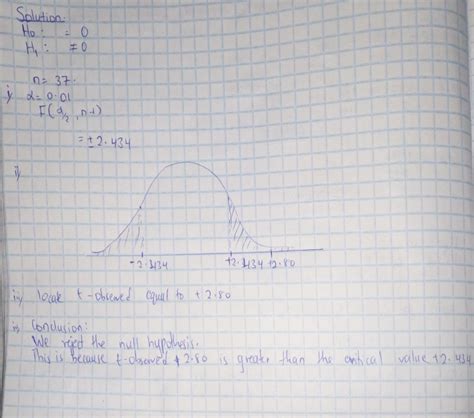 Solution
H0 : = 0
H1 : ≠ 0
n = 37.
i) α = 0.01
F(α/2, n-1)
= ± 2.434
ii)
-2.434 +2.434 +2.80
iii) locate t-observed equal to +2.80
iv) Conclusion:
We reject the null hypothesis.
This is because t-observed +2.80 is greater than the critical value +2.434